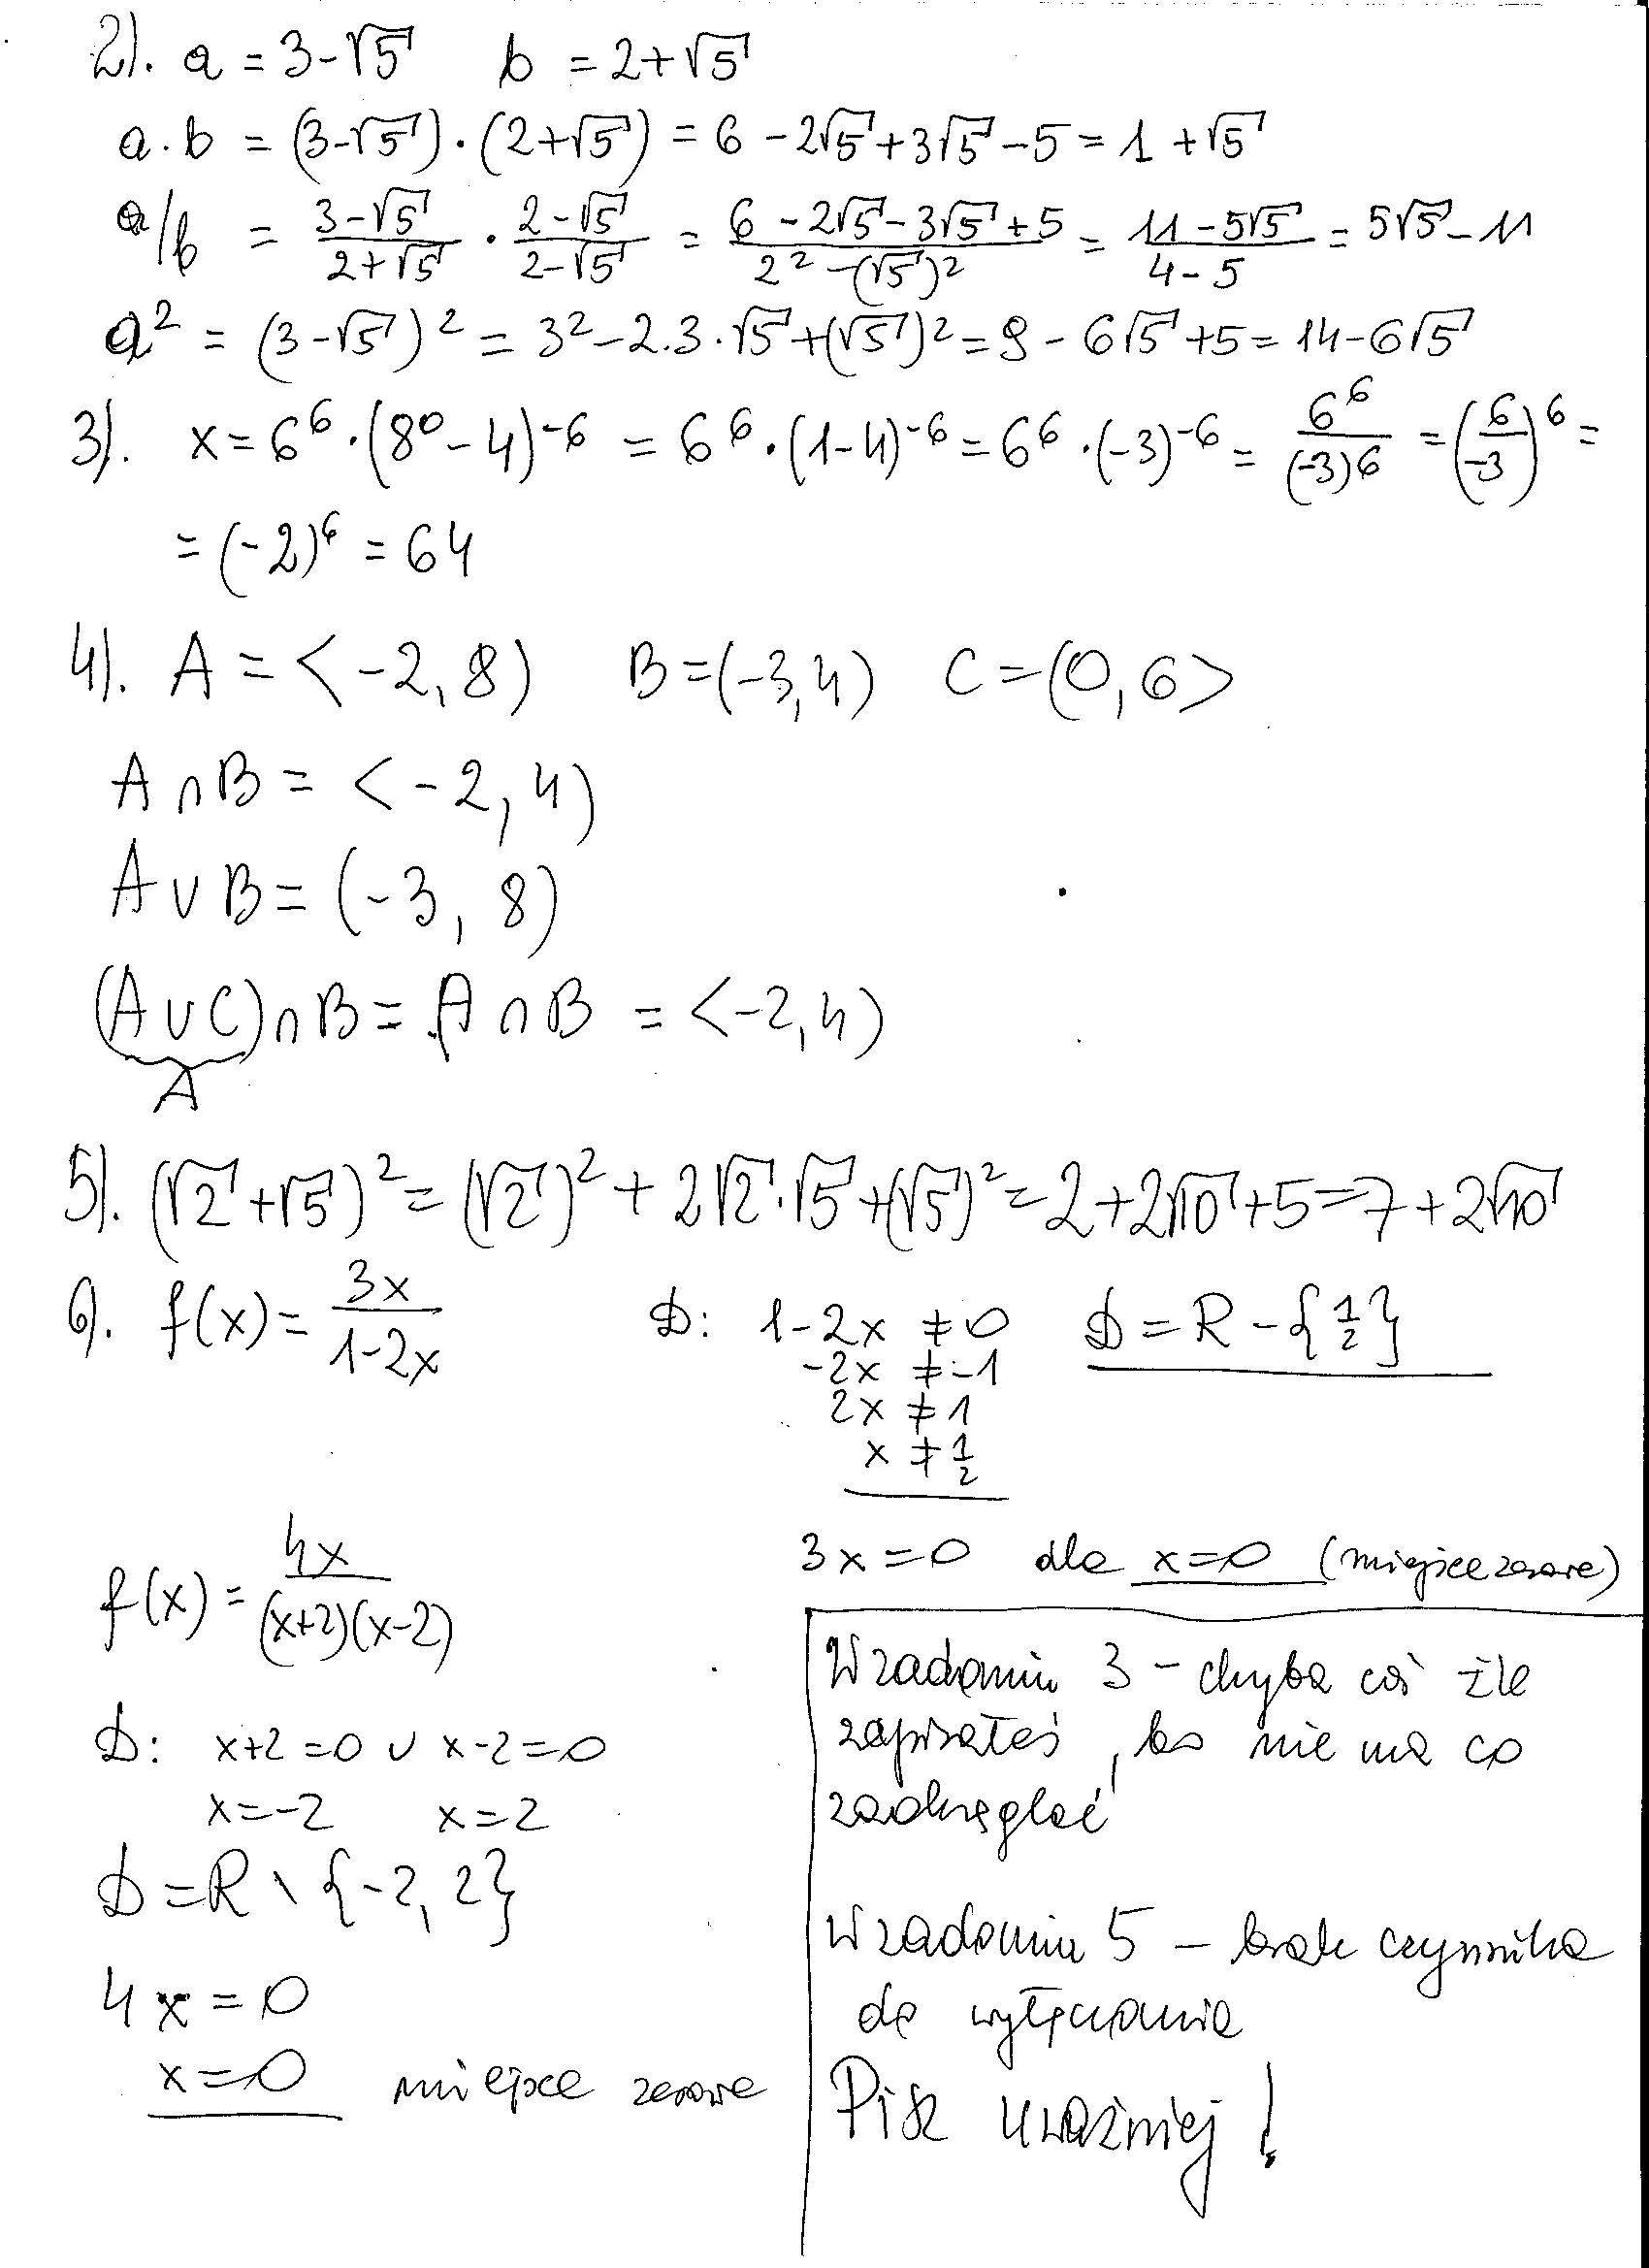 2). a = 3-√5 b = 2+√5
a·b = (3-√5)·(2+√5) = 6 - 2√5 + 3√5 - 5 = 1 + √5
a/b = (3-√5)/(2+√5) · (2-√5)/(2-√5) = (6 - 2√5 - 3√5 + 5)/(2² - (√5)²) = (11 - 5√5)/(4 - 5) = 5√5 - 11
a² = (3-√5)² = 3² - 2·3·√5 + (√5)² = 9 - 6√5 + 5 = 14 - 6√5
3). x = 6⁶·(8⁰ - 4)⁻⁶ = 6⁶·(1-4)⁻⁶ = 6⁶·(-3)⁻⁶ = 6⁶/(-3)⁶ = (6/-3)⁶ =
= (-2)⁶ = 64
4). A = < -2, 8) B = (-3, 4) C = (0, 6>
A ∩ B = < -2, 4)
A ∪ B = (-3, 8)
(A ∪ C) ∩ B = A ∩ B = < -2, 4)
A
5). (√2 + √5)² = (√2)² + 2√2·√5 + (√5)² = 2 + 2√10 + 5 = 7 + 2√10
6). f(x) = 3x/(1-2x) D: 1-2x ≠ 0 D = R - {1/2}
-2x ≠ -1
2x ≠ 1
x ≠ 1/2
3x = 0 dla x = 0 (miejsce zerowe)
f(x) = 4x/((x+2)(x-2))
D: x+2 = 0 ∪ x-2 = 0
x = -2 x = 2
D = R \ {-2, 2}
4x = 0
x = 0 miejsce zerowe
W zadaniu 3 - chyba coś źle
zapisałeś, bo nie ma co
zaokrąglać
W zadaniu 5 - brak czynnika
do wyłączania
Pisz uważniej!